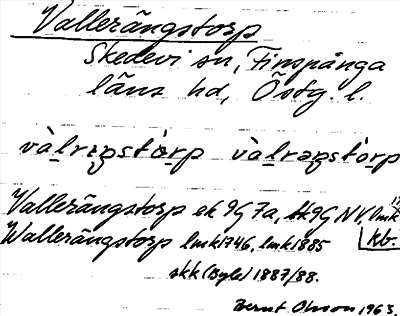 Vallerängstorp
Skedevi sn, Finspånga
läns hd, Östg. l.
vàlrɩŋstòrp vàlrəŋstòrp
Vallerängstorp ek 9G 7a, tk 9G NV, lmk
Wallerängstorp lmk 1746, lmk 1885 kb.
skk (Byle) 1887/88.
Bernt Olsson 1963.